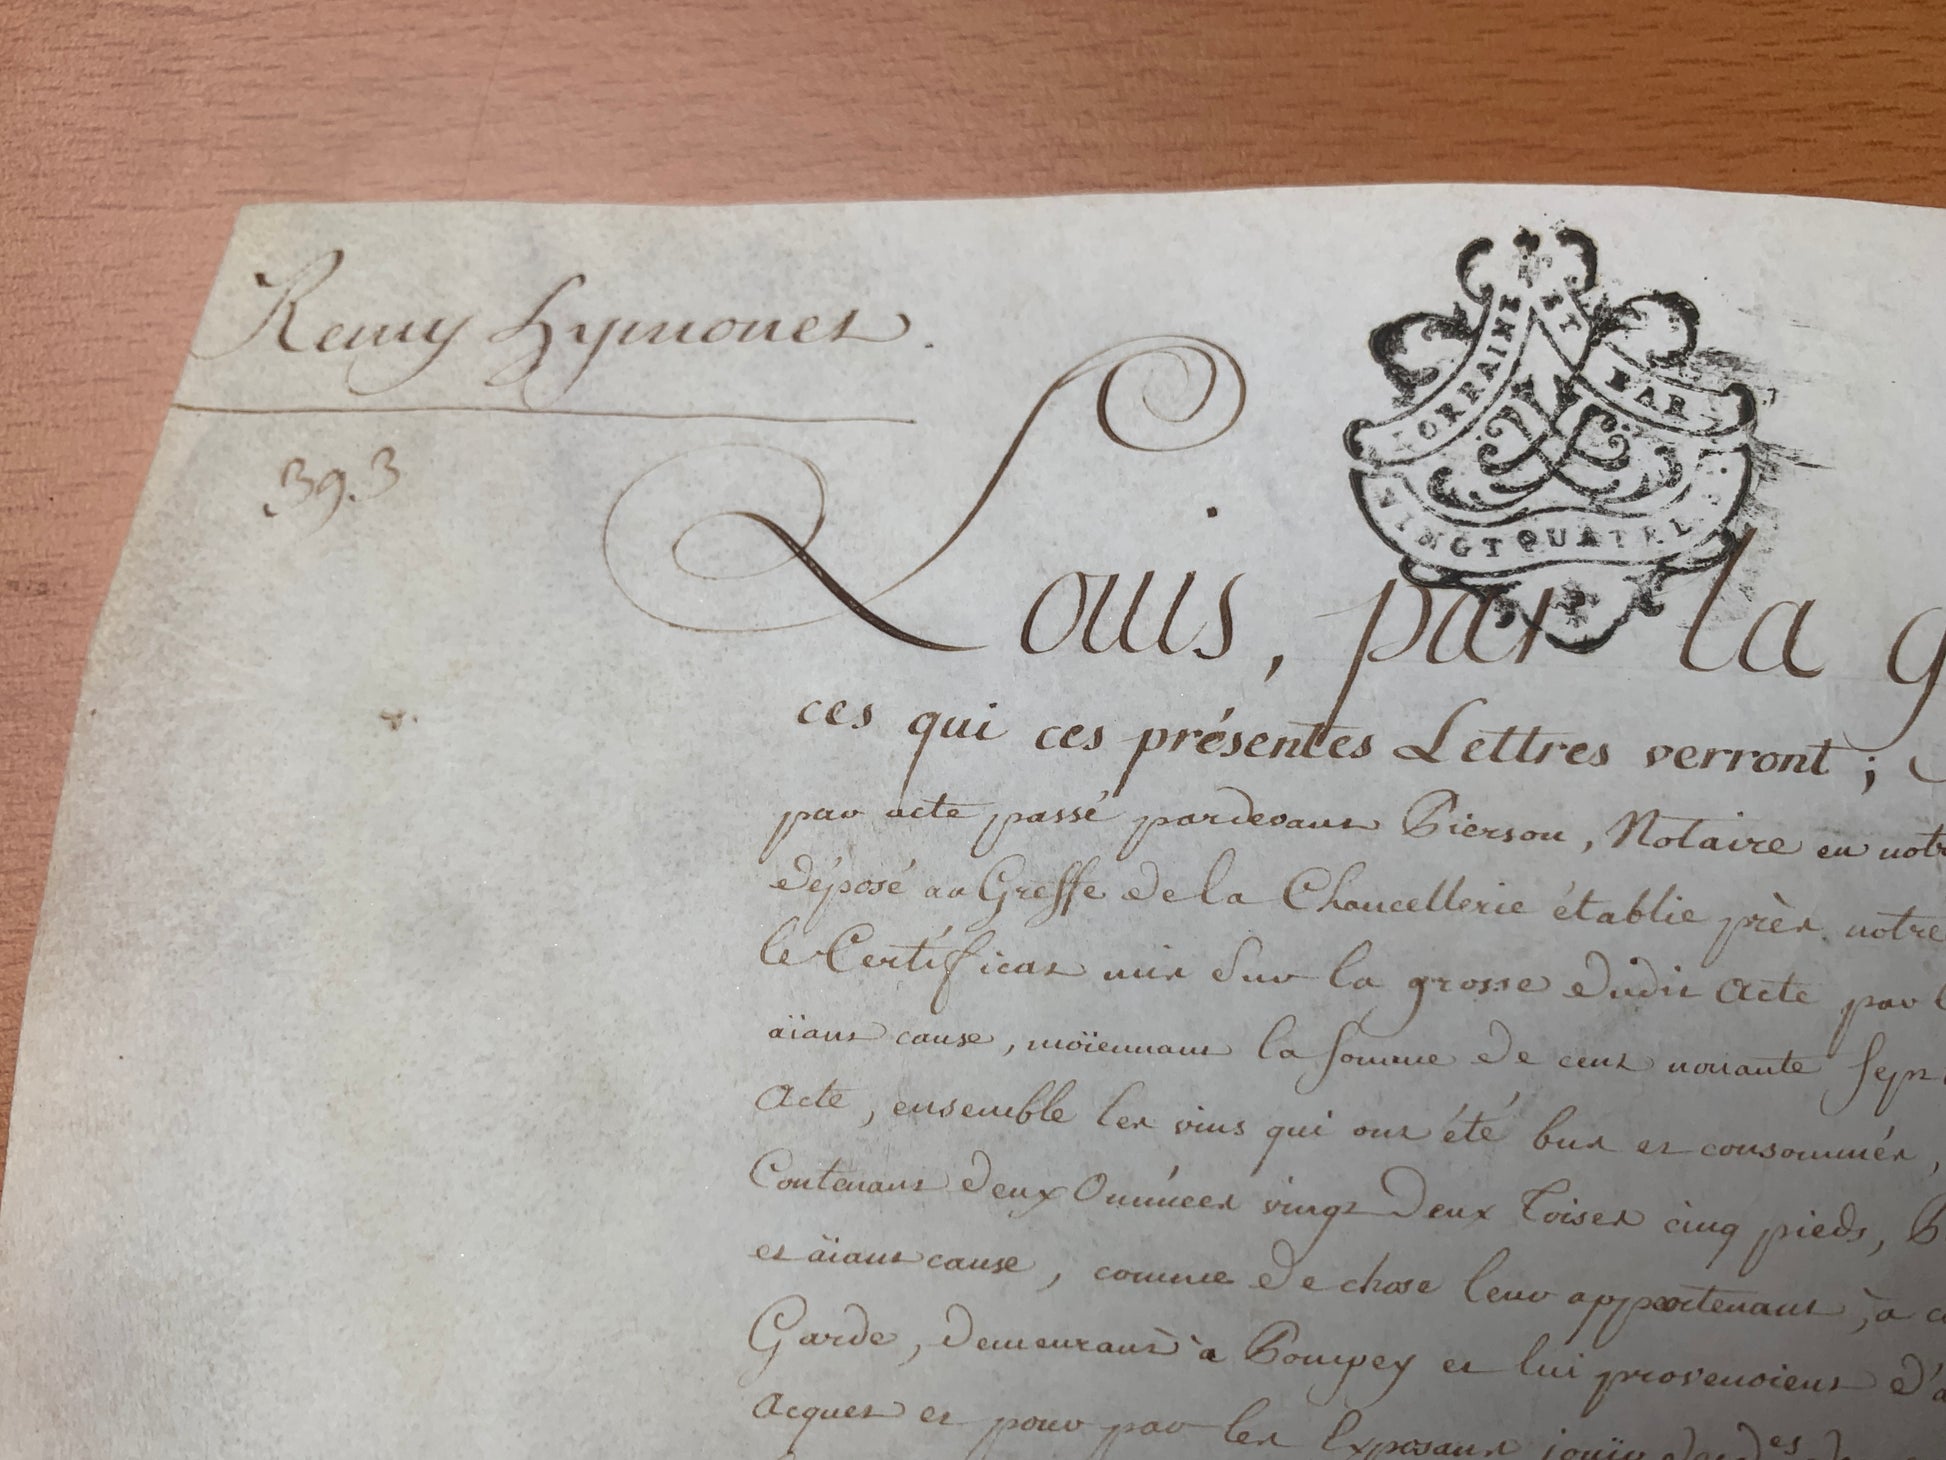 Remy Hymonet.
39.3
LORRAINE ET BAR
VINGT QUATRE
Louis, par la g
ces qui ces présentes Lettres verront;
par acte passé pardevant Pierson, Notaire en notre
déposé au Greffe de la Chancellerie établie près notre
le Certificat mis sur la grosse dudit Acte par l
aïant cause, moïennant la somme de cent nonante sept
Acte, ensemble les vins qui ont été bus et consommés,
Contenant deux Omméés vingt deux Toises cinq pieds, B
et aïant cause, comme de chose leur appartenant, à c
Garde, demeurant à Pompey et lui provenoient d'a
Acquet et pour par les Exposans jouir